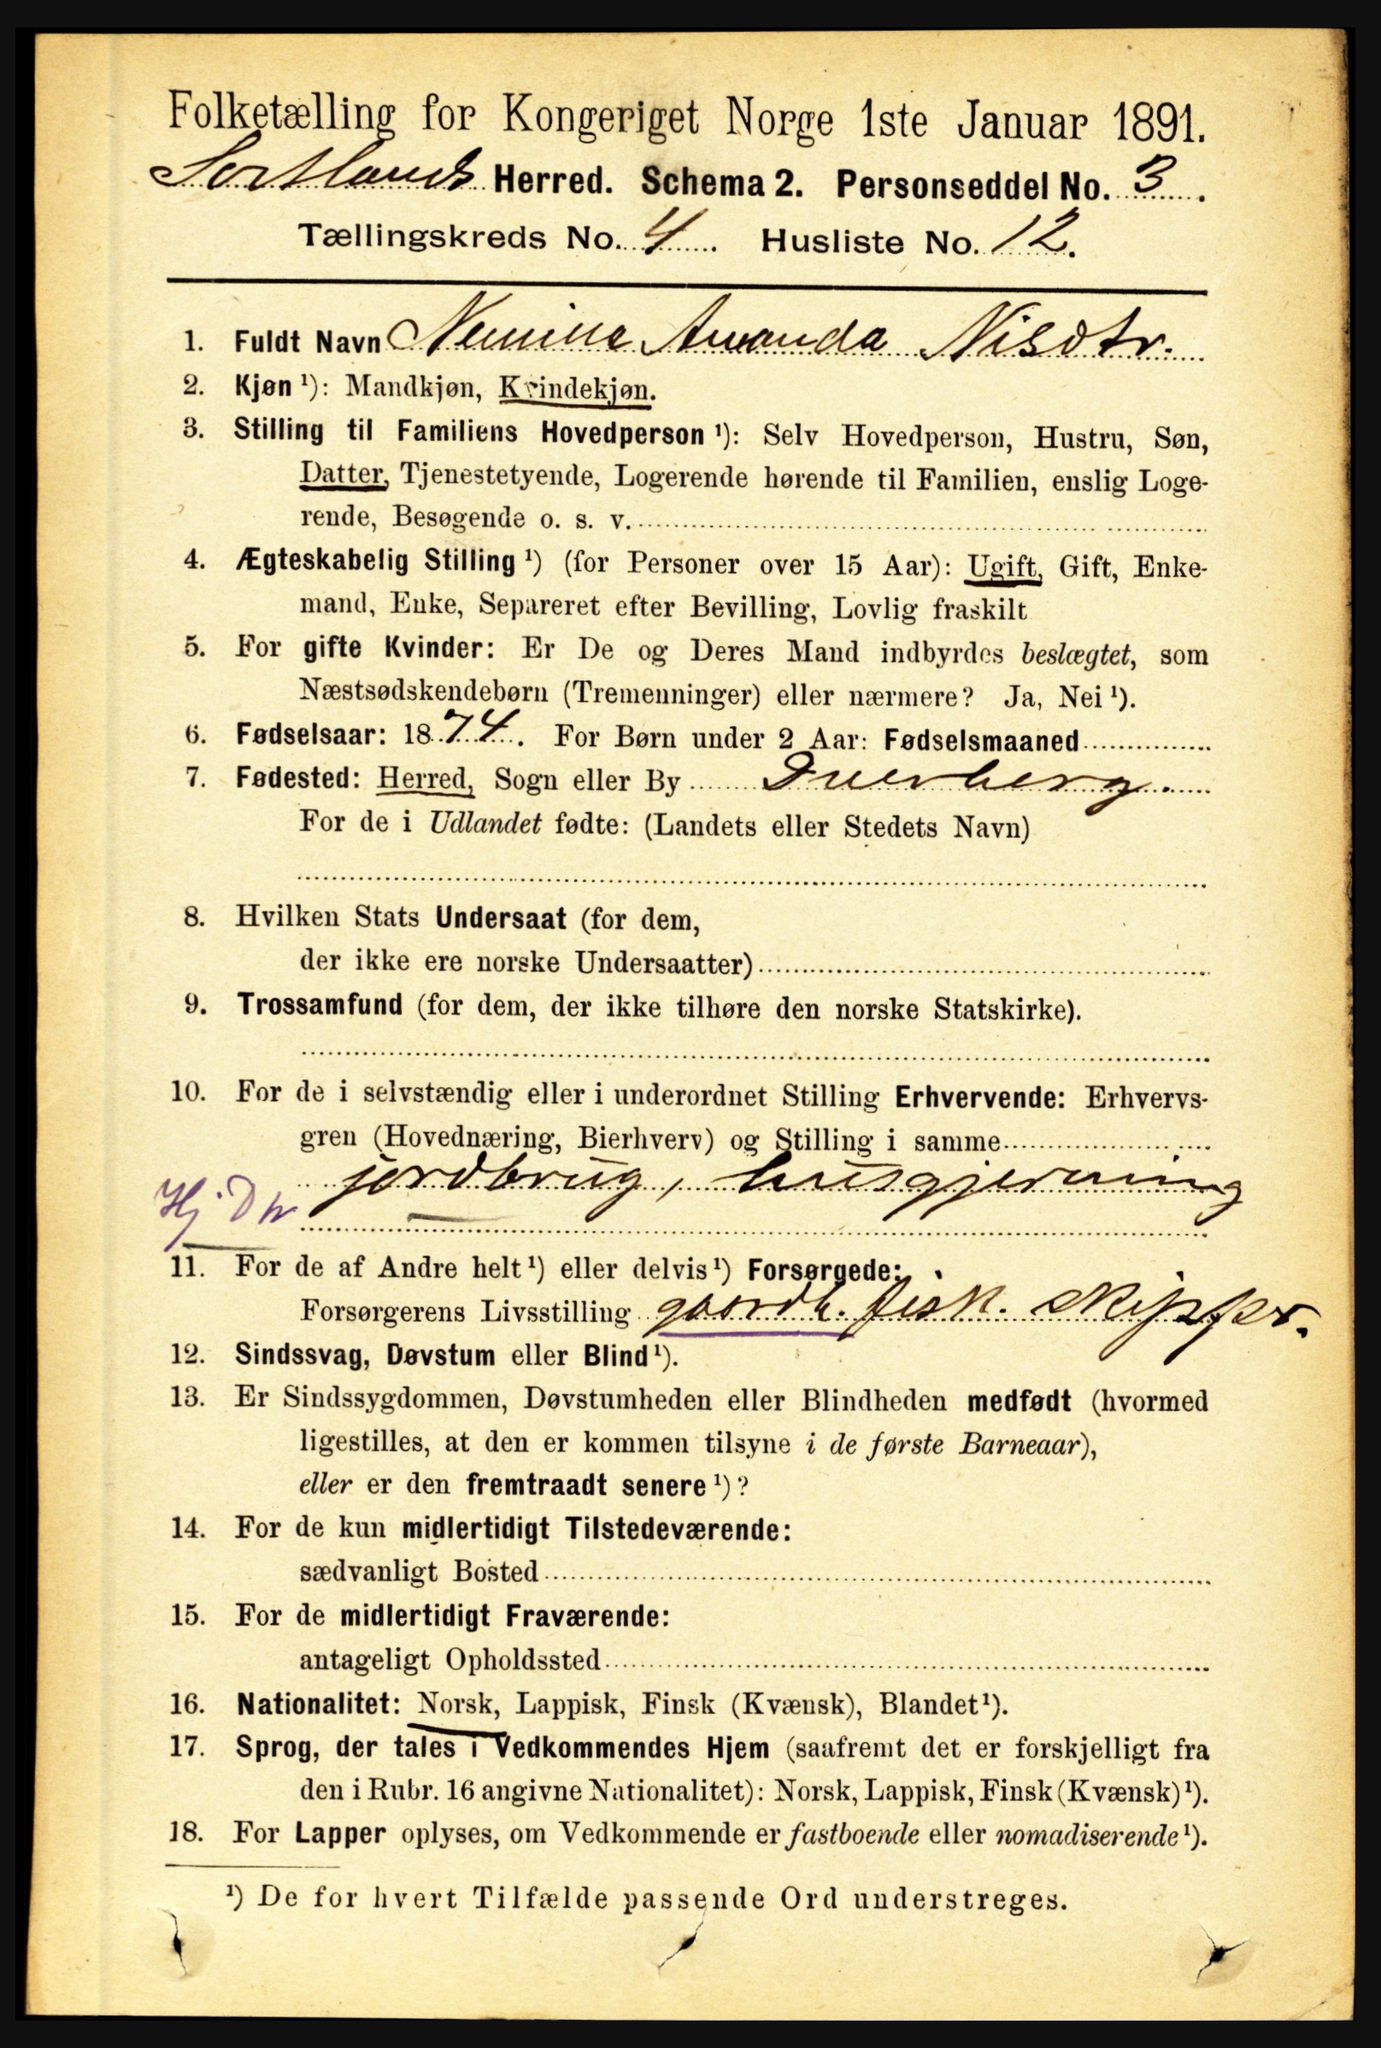 Folketælling for Kongeriget Norge 1ste Januar 1891.
Sortlands Herred. Schema 2. Personseddel No. 3.
Tællingskreds No. 4. Husliste No. 12.
1. Fuldt Navn Amanda Nisdtr.
2. Kjøn ¹): Mandkjøn, Kvindekjøn.
3. Stilling til Familiens Hovedperson ¹): Selv Hovedperson, Hustru, Søn,
Datter, Tjenestetyende, Logerende hørende til Familien, enslig Loge-
rende, Besøgende o. s. v.
4. Ægteskabelig Stilling ¹) (for Personer over 15 Aar): Ugift, Gift, Enke-
mand, Enke, Separeret efter Bevilling, Lovlig fraskilt
5. For gifte Kvinder: Er De og Deres Mand indbyrdes beslægtet, som
Næstsødskendebørn (Tremenninger) eller nærmere? Ja, Nei ¹).
6. Fødselsaar: 1874. For Børn under 2 Aar: Fødselsmaaned
7. Fødested: Herred, Sogn eller By Dverberg.
For de i Udlandet fødte: (Landets eller Stedets Navn)
8. Hvilken Stats Undersaat (for dem,
der ikke ere norske Undersaatter)
9. Trossamfund (for dem, der ikke tilhøre den norske Statskirke).
10. For de i selvstændig eller i underordnet Stilling Erhvervende: Erhvervs-
gren (Hovednæring, Bierhverv) og Stilling i samme
jordbrug, husgjerning
Hj Dtr
11. For de af Andre helt ¹) eller delvis ¹) Forsørgede:
Forsørgerens Livsstilling gaardb. fisk. skipper.
12. Sindssvag, Døvstum eller Blind ¹).
13. Er Sindssygdommen, Døvstumheden eller Blindheden medfødt (hvormed
ligestilles, at den er kommen tilsyne i de første Barneaar),
eller er den fremtraadt senere ¹)?
14. For de kun midlertidigt Tilstedeværende:
sædvanligt Bosted
15. For de midlertidigt Fraværende:
antageligt Opholdssted
16. Nationalitet: Norsk, Lappisk, Finsk (Kvænsk), Blandet ¹).
17. Sprog, der tales i Vedkommendes Hjem (saafremt det er forskjelligt fra
den i Rubr. 16 angivne Nationalitet): Norsk, Lappisk, Finsk (Kvænsk) ¹).
18. For Lapper oplyses, om Vedkommende er fastboende eller nomadiserende ¹).
¹) De for hvert Tilfælde passende Ord understreges.